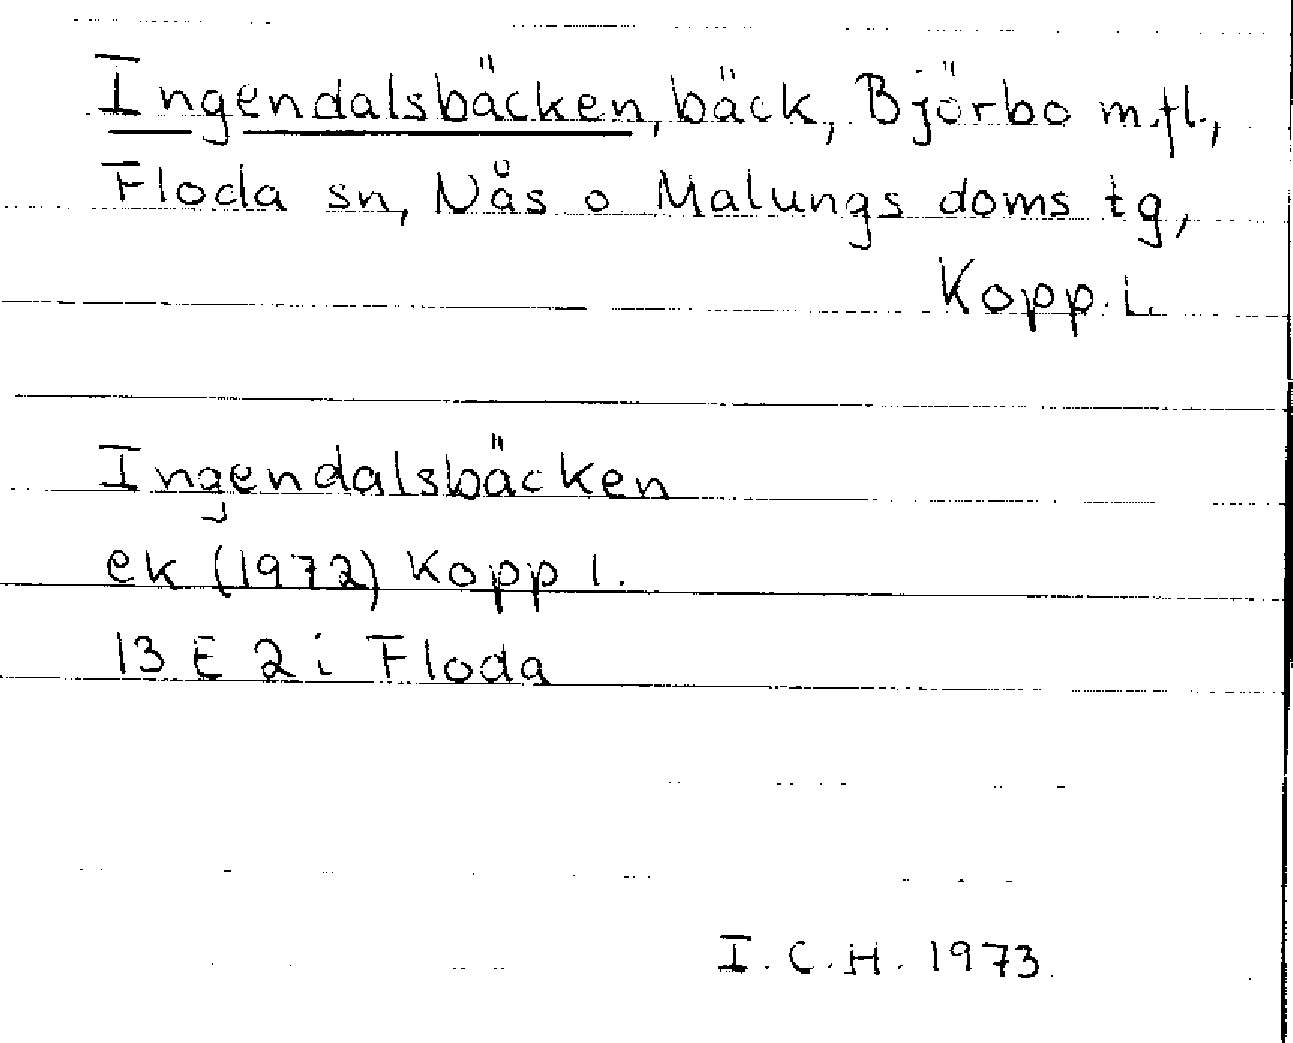 Ingendalsbäcken, bäck, Björbo m.fl.,
Floda sn, Nås o Malungs doms tg,
Kopp. l.
Ingendalsbäcken
ek (1972) Kopp l.
13 E 2 i Floda
I. C. H. 1973.